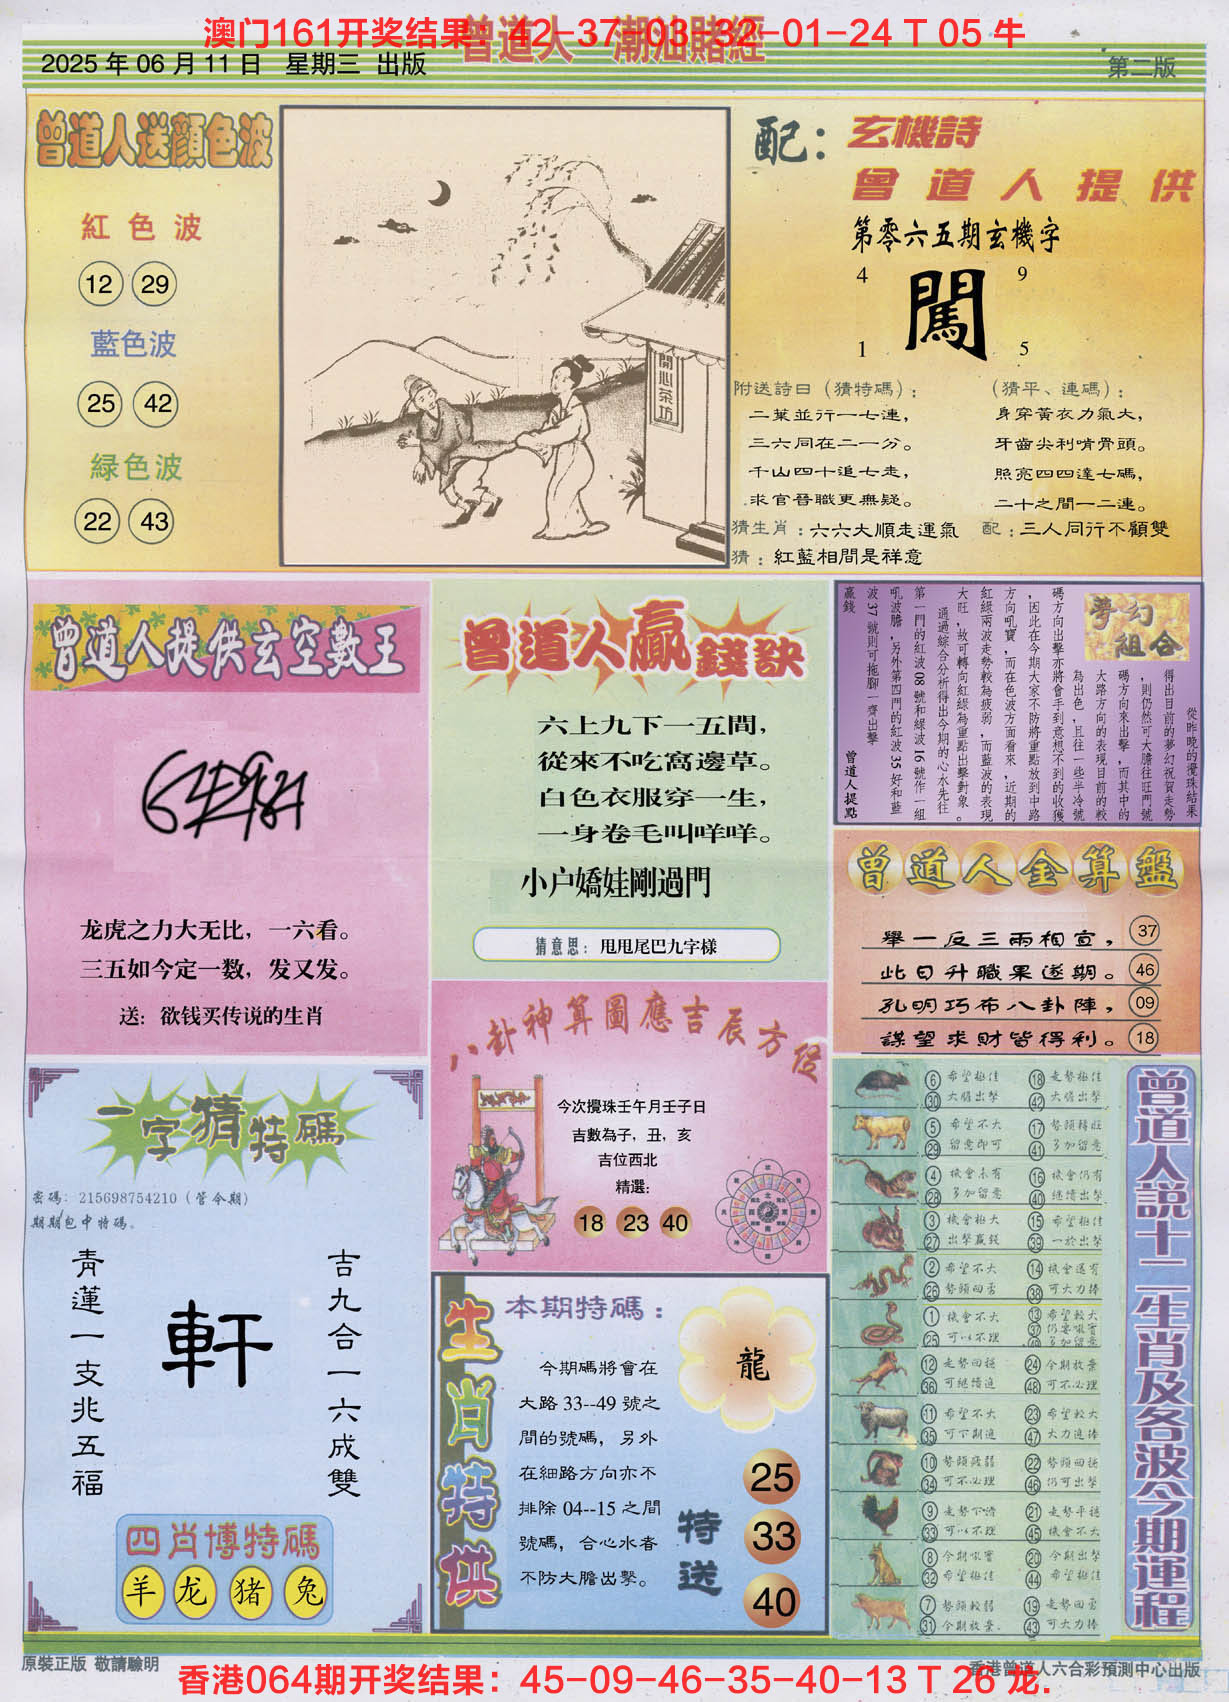 澳门161开奖结果：42-37-03-32-01-24 T 05 牛
曾道人 潮汕賭經
2025 年 06 月 11 日 星期三 出版
第二版
曾道人送顏色波
紅色波
12 29
藍色波
25 42
緑色波
22 43
開心茶坊
配：玄機詩
曾道人提供
第零六五期玄機字
4 9
闖
1 5
附送詩曰（猜特碼）：
二葉並行一七連，
三六同在二一分。
千山四十追七走，
求官晉職更無疑。
（猜平、連碼）：
身穿黃衣力氣大，
牙齒尖利啃骨頭。
照亮四四達七碼，
二十之間一二連。
猜生肖：六六大順走運氣
配：三人同行不顧雙
猜：紅藍相間是祥意
曾道人提供玄空數王
龙虎之力大无比，一六看。
三五如今定一数，发又发。
送：欲钱买传说的生肖
曾道人贏錢訣
六上九下一五間，
從來不吃窩邊草。
白色衣服穿一生，
一身卷毛叫咩咩。
小户嬌娃剛過門
猜意思：甩甩尾巴九字様
夢幻組合
從昨晚的攪珠結果
得出目前的夢幻祝賀走勢
，則仍然可大膽往旺門號
碼方向來出擊，而其中的
大路方向的表現目前的較
為出色，且往一些半冷號
碼方向出擊亦將會手到意想不到的收獲
，因此在今期大家不防將重點放到中路
方向吼寶，而在色波方面看來，近期的
紅綠兩波走勢較為疲弱，而藍波的表現
大旺，故可轉向紅綠為重點出擊對象。
通過綜合分析得出今期的心水先往
第一門的紅波08號和緑波16號作一組
吼波膽，另外第四門的紅波35好和藍
波37號則可拖腳一齊出擊
贏錢
曾道人提點
曾道人金算盤
舉一反三兩相宜，37
此日升職果遂期。46
孔明巧布八卦陣，09
謀望求財皆得利。18
八卦神算圖應吉辰方位
今次攪珠壬午月壬子日
吉數為子，丑，亥
吉位西北
精選：
18 23 40
一字猜特碼
密碼：215698754210（管令期）
期期包中特碼。
青蓮一支兆五福
軒
吉九合一六成雙
四肖博特碼
羊 龙 猪 兔
生肖特供
本期特碼：
龍
今期碼將會在
大路 33--49 號之
間的號碼，另外
在細路方向亦不
排除 04--15 之間
號碼，合心水者
不防大膽出擊。
特送
25
33
40
曾道人説十二生肖及各波今期運程
6 希望極佳 18 走勢極佳
30 大膽出擊 42 大膽出擊
5 希望不大 17 勢頭轉旺
29 留意即可 41 多加留意
4 機會未有 16 機會仍有
28 多加留意 40 継續出擊
3 機會極大 15 希望極佳
27 出擊贏錢 39 一於出擊
2 希望不大 14 機會還有
26 勢頭回雲 38 可大力捧
1 機會不大 13 希望較大
25 可以不理
12 走勢回穩 24 今期放棄
36 可継續追 48 可不必理
11 希望不大 23 希望較大
35 可下期追 47 大力追捧
10 勢頭疲弱 22 勢頭回穩
34 可不必理 46 仍可出擊
9 走勢下滑 21 走勢平穩
33 可以不理 45 機會不大
8 今期吼寶 20 今期出擊
32 希望極佳 44 希望極佳
7 勢頭較弱 19 走勢回雲
31 今期放棄. 43 可大力捧
原裝正版 敬請驗明
香港曾道人六合彩預測中心出版
香港064期开奖结果：45-09-46-35-40-13 T 26 龙.